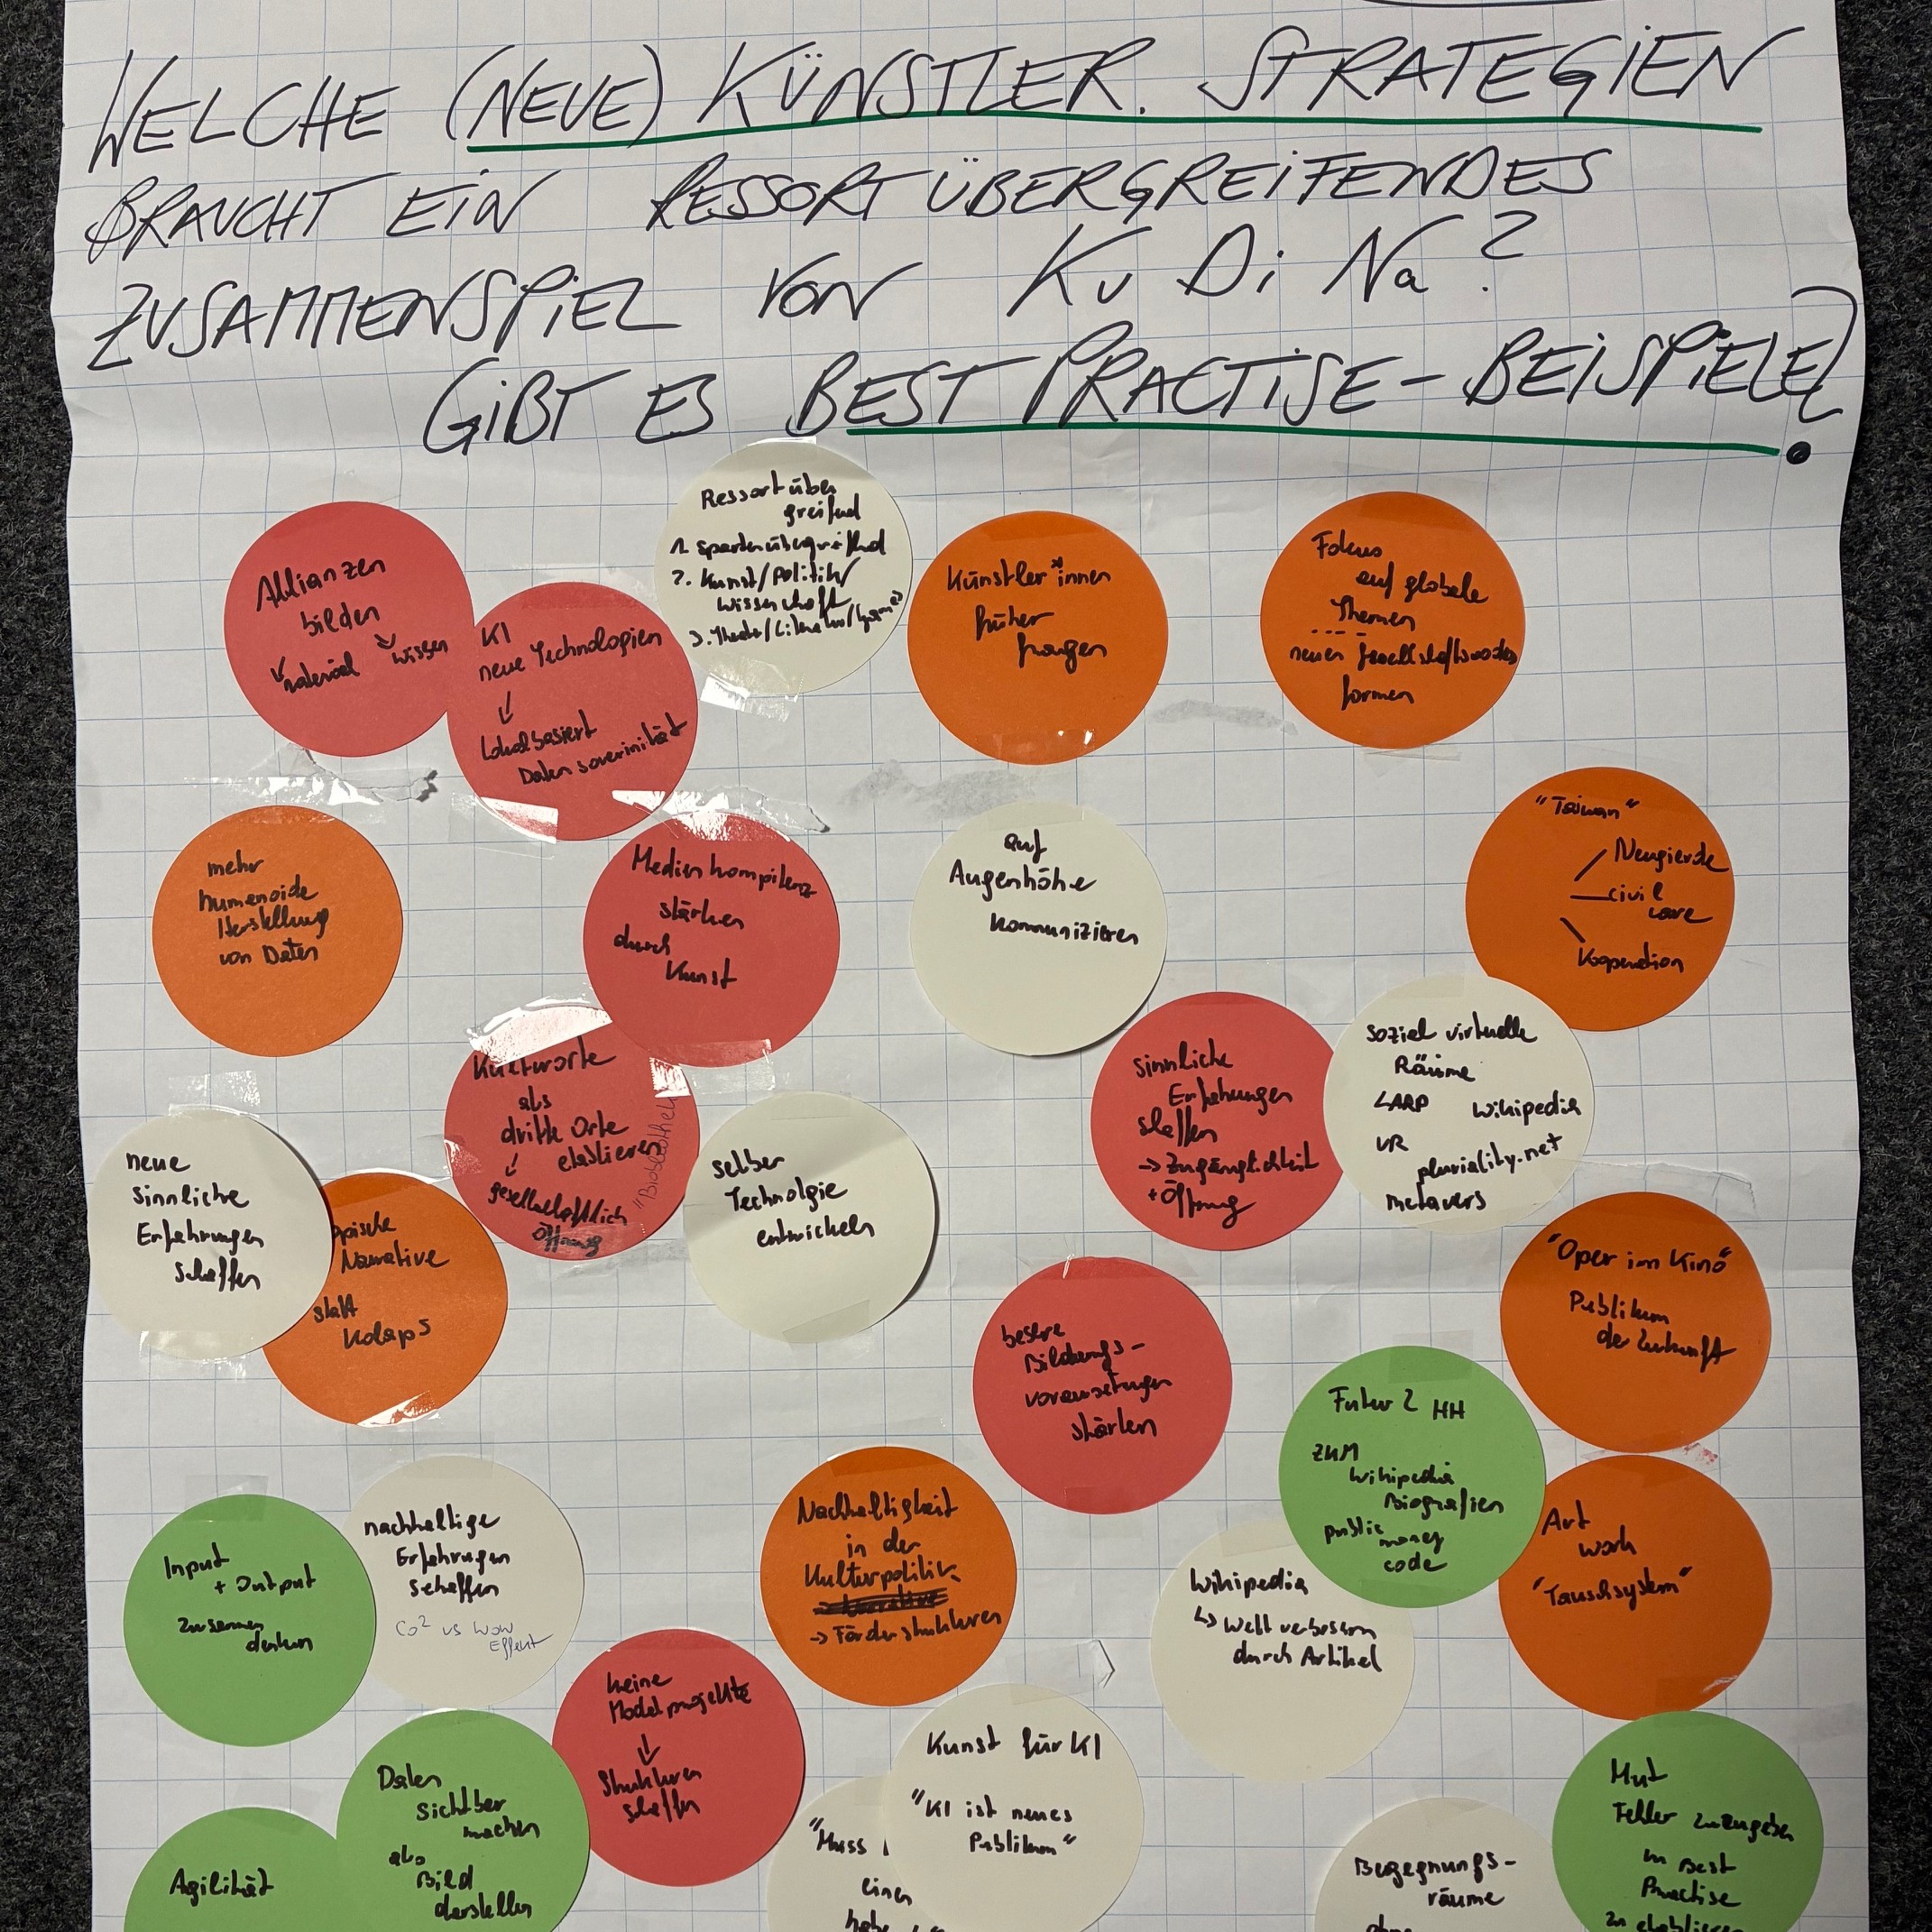 WELCHE (NEUE) KÜNSTLER. STRATEGIEN
BRAUCHT EIN RESSORTÜBERGREIFENDES
ZUSAMMENSPIEL VON Ku Di Na?
GIBT ES BEST PRACTISE-BEISPIELE?
Ressortüber
greifend
1. spartenübergreifend
2. Kunst/Politik/
Wissenschaft
3. Theater/Literatur/
Allianzen
bilden
material wissen
KI
neue Technologien
↓
Lokalbasiert
Daten soverinität
Künstler*innen
früher
fragen
Fokus
auf globale
Themen
...
neuen
formen
mehr
humanoide
Herstellung
von Daten
Medienkompitenz
stärken
durch
Kunst
auf
Augenhöhe
kommunizieren
"Taiwan"
Neugierde
civil
care
Kooperation
Kulturorte
als
dritte Orte
etablieren
↓
gesellschaftlich
Öffnung
sinnliche
Erfahrungen
schaffen
→ Zugänglichkeit
+ Öffnung
sozial virtuelle
Räume
LARP Wikipedia
VR
pluriality.net
metavers
neue
sinnliche
Erfahrungen
schaffen
Narrative
statt
Kolaps
selber
Technolgie
entwickeln
"Oper im Kino"
Publikum
der Zukunft
bessere
Bildungs-
voraussetzungen
stärken
Futur 2 HH
ZKM
Wikipedia
Biografien
public money
code
Art
work
"Tauschsystem"
Input
+ Output
zusammen
denken
nachhaltige
Erfahrungen
schaffen
Co² vs Wow
Effekt
Nachhaltigkeit
in der
Kulturpolitik
→ Förderstrukturen
Wikipedia
↳ Welt verbessern
durch Artikel
keine
Modelprojekte
↓
Strukturen
schaffen
Kunst für KI
"KI ist neues
Publikum"
Daten
sichtbar
machen
als
Bild
darstellen
Agilität
"Muss
einen
habe
Begegnungs-
räume
ohne
Mut
Fehler zuzugeben
in Best
Practise
zu etablieren